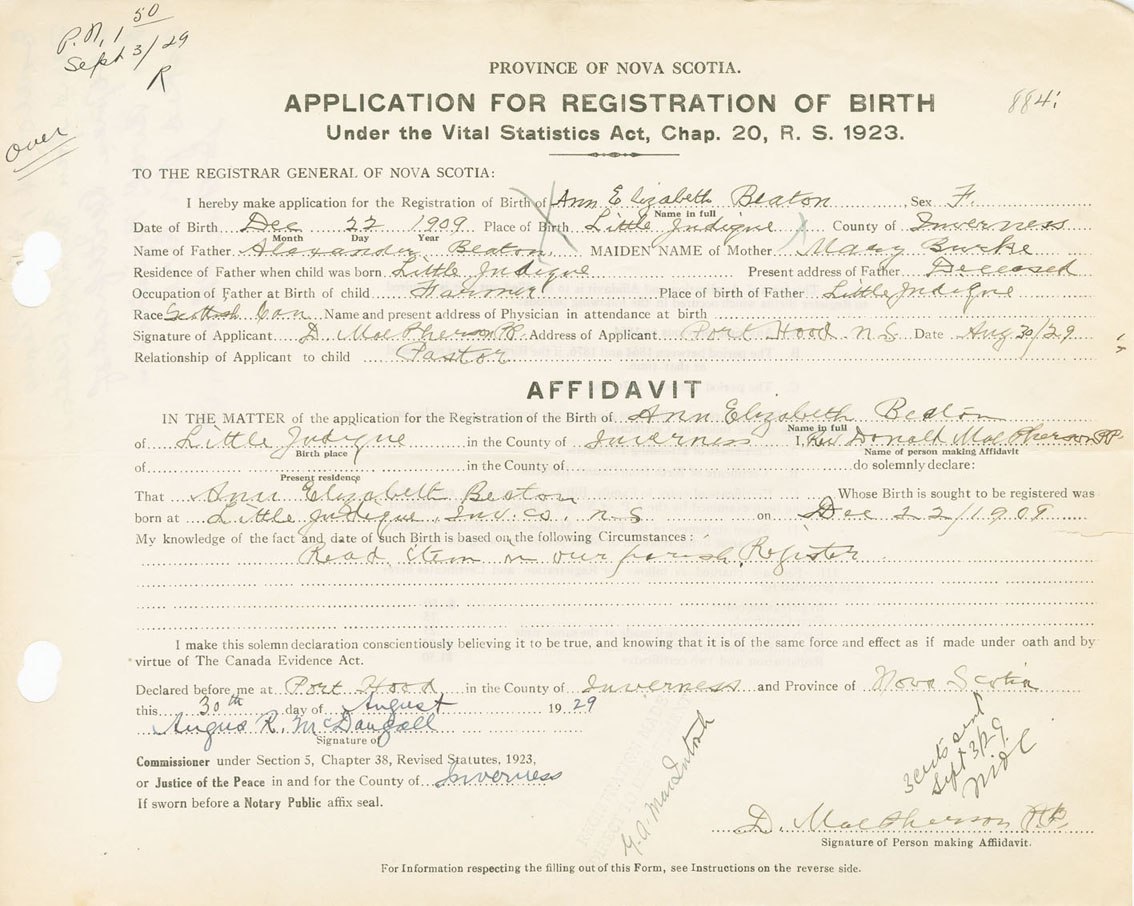 P.N. 1 50
Sept 3/29
R
over
PROVINCE OF NOVA SCOTIA.
APPLICATION FOR REGISTRATION OF BIRTH
Under the Vital Statistics Act, Chap. 20, R. S. 1923.
TO THE REGISTRAR GENERAL OF NOVA SCOTIA:
I hereby make application for the Registration of Birth of Ann Elizabeth Beaton Sex F.
Name in full
Date of Birth Dec 22 1909 Place of Birth Little Judique County of Inverness
Month Day Year
Name of Father Alexander Beaton. MAIDEN NAME of Mother Mary Burke
Residence of Father when child was born Little Judique Present address of Father Deceased
Occupation of Father at Birth of child Farmer Place of birth of Father Little Judique
Race Scottish Can Name and present address of Physician in attendance at birth
Signature of Applicant D. MacPherson PP. Address of Applicant Port Hood N S Date Aug 30/29
Relationship of Applicant to child Pastor
AFFIDAVIT
IN THE MATTER of the application for the Registration of the Birth of Ann Elizabeth Beaton
Name in full
of Little Judique in the County of Inverness I, Rev Donald MacPherson PP
Birth place Name of person making Affidavit
of in the County of do solemnly declare:
Present residence
That Ann Elizabeth Beaton Whose Birth is sought to be registered was
born at Little Judique, Inv. Co. N S on Dec 22/1909
My knowledge of the fact and date of such Birth is based on the following Circumstances:
Read item in our parish Register
I make this solemn declaration conscientiously believing it to be true, and knowing that it is of the same force and effect as if made under oath and by
virtue of The Canada Evidence Act.
Declared before me at Port Hood in the County of Inverness and Province of Nova Scotia
this 30th day of August 1929
Angus R. McDougall
Signature of
Commissioner under Section 5, Chapter 38, Revised Statutes, 1923,
or Justice of the Peace in and for the County of Inverness
If sworn before a Notary Public affix seal.
G. A. MacIntosh
sent
Sept 3/29.
D. MacPherson PP.
Signature of Person making Affidavit.
For Information respecting the filling out of this Form, see Instructions on the reverse side.